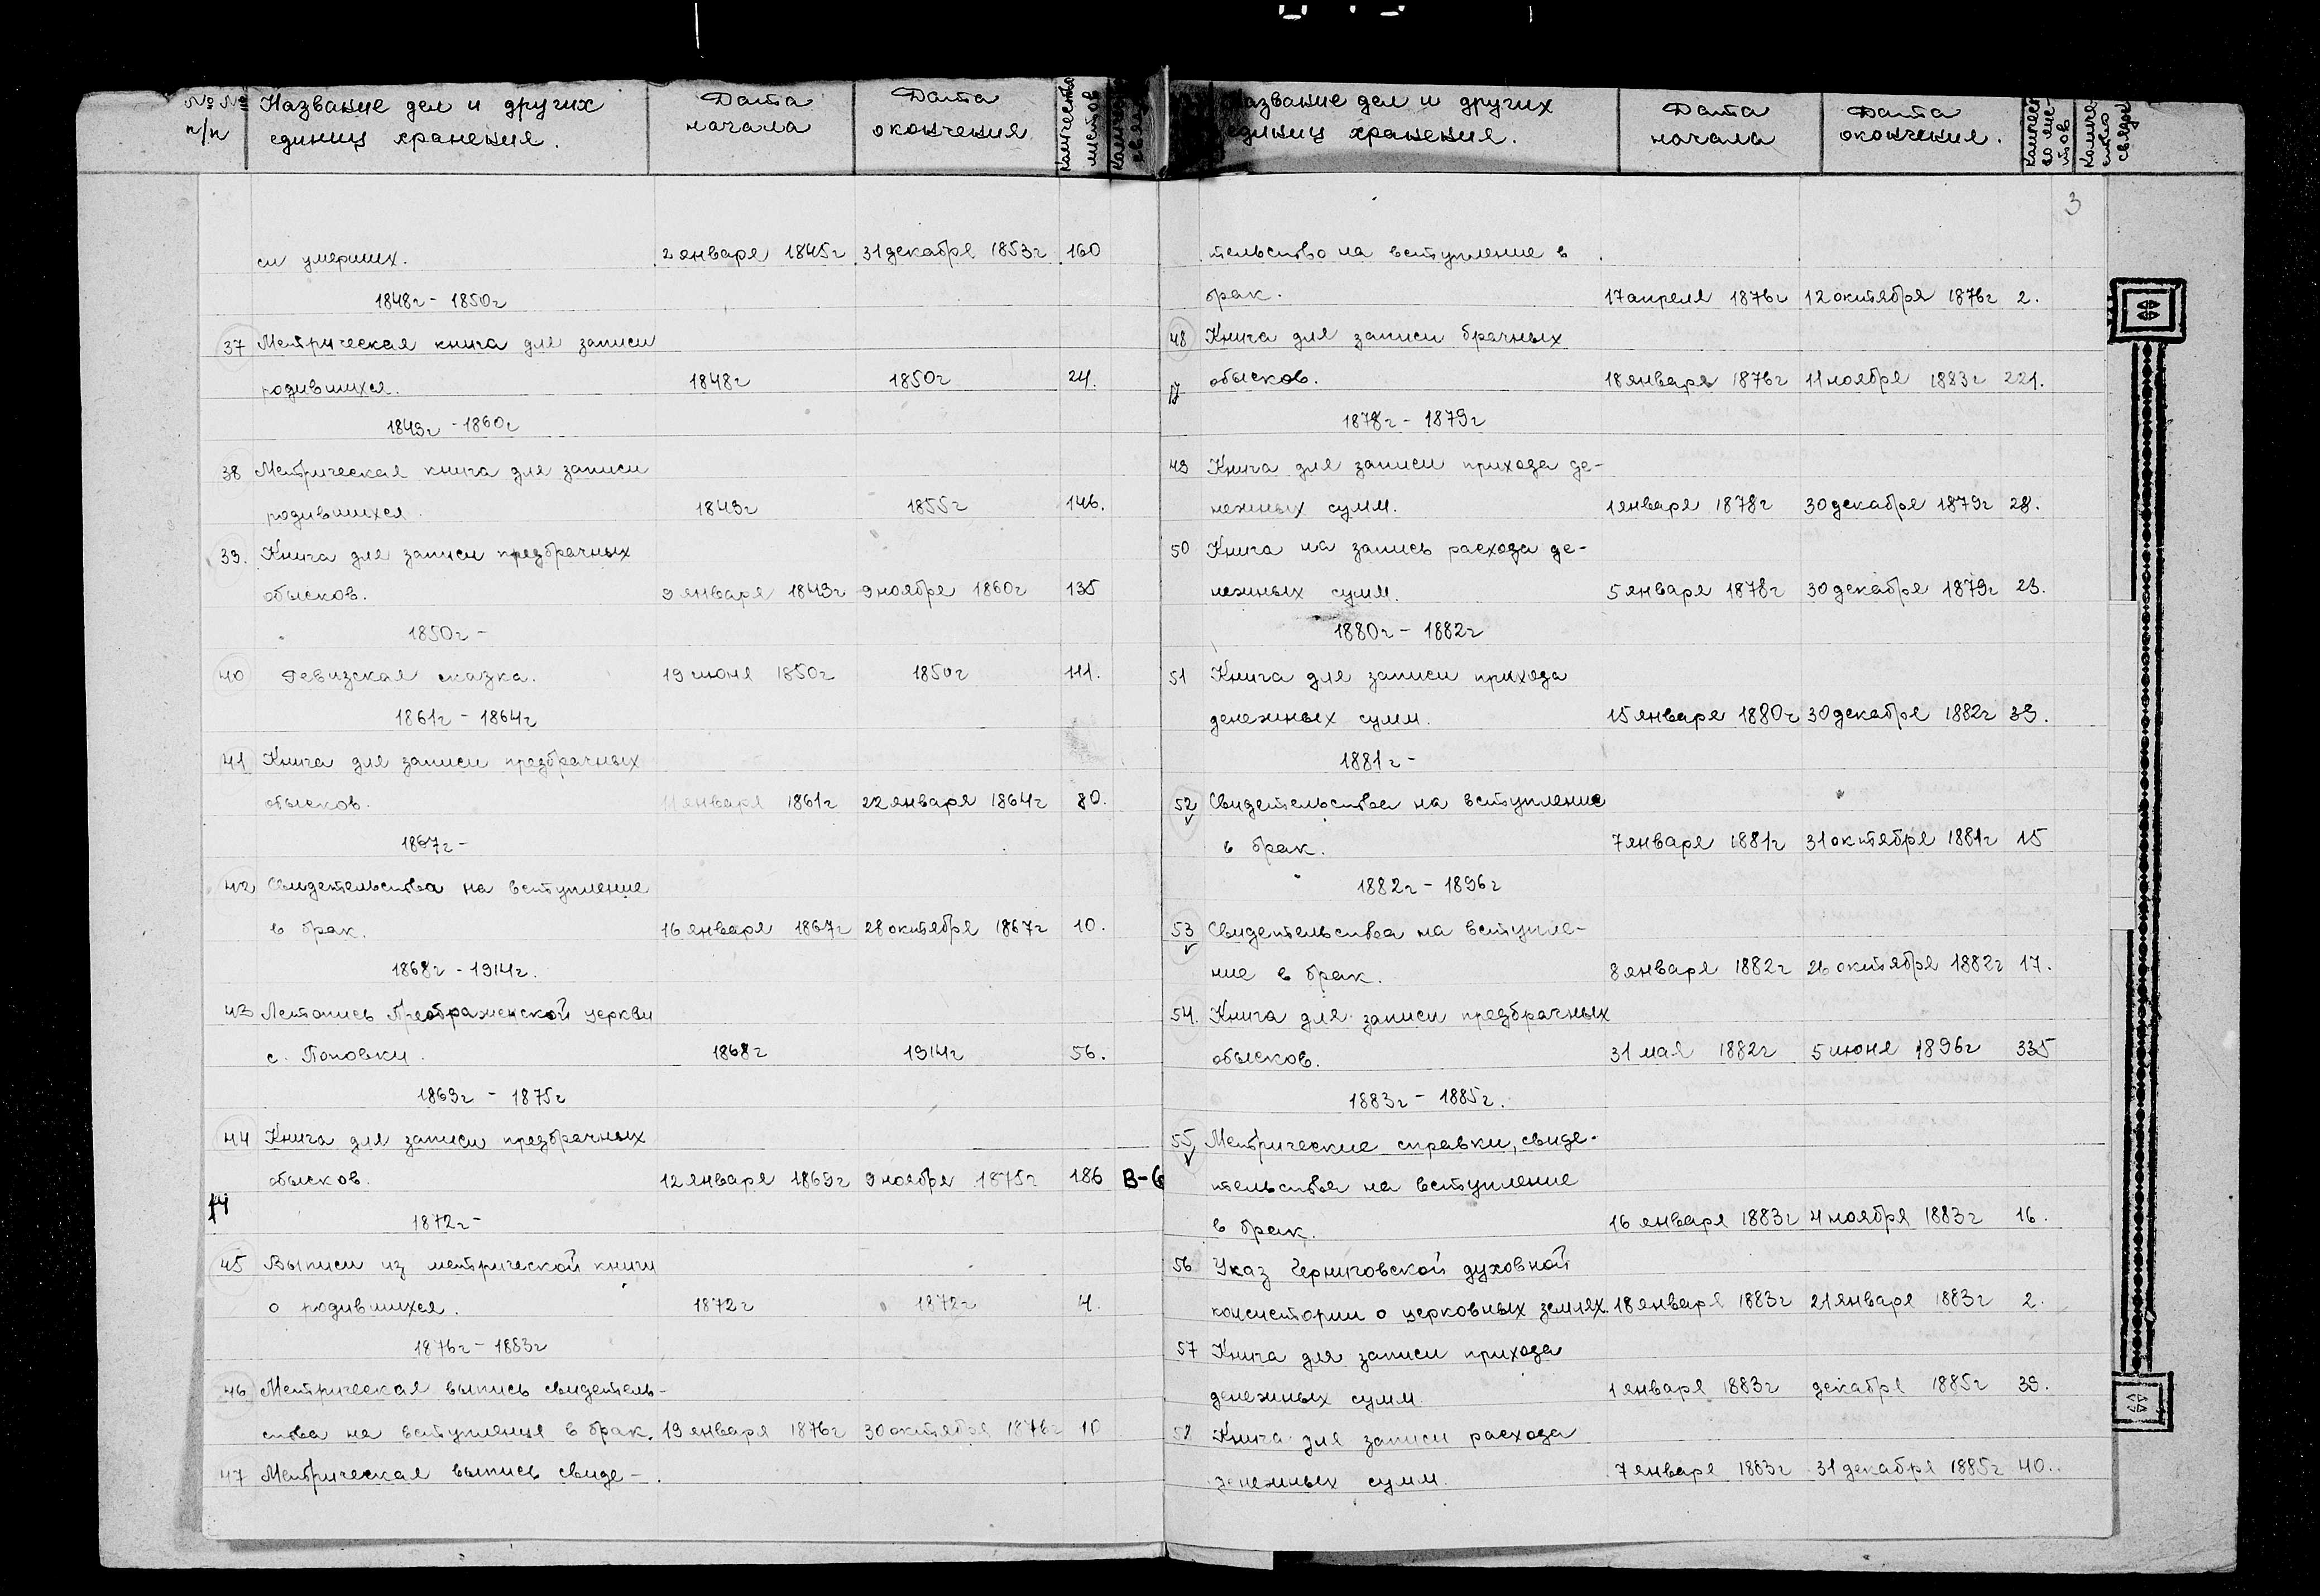 №№ п/п
Название дел и других единиц хранения.
Дата начала
Дата окончения
Количество листов
си умерших. 2 января 1845г 31 декабря 1853г 160
1848г - 1850г
37 Метрическая книга для записи
родившихся. 1848г 1850г 24.
1849г - 1860г
38 Метрическая книга для записи
родившихся. 1849г 1855г 146.
39. Книга для записи предбрачных
обысков. 9 января 1849г 9 ноября 1860г 135
1850г -
40 Ревизская сказка. 19 июня 1850г 1850г 111.
1861г - 1864г
41 Книга для записи предбрачных
обысков. 11 января 1861г 22 января 1864г 80.
1867г -
42 Свидетельства на вступление
в брак. 16 января 1867г 28 октября 1867г 10.
1868г - 1914г.
43 Летопись Преображенской церкви
с. Поповки. 1868г 1914г 56.
1869г - 1875г
44 Книга для записи предбрачных
обысков. 12 января 1869г 9 ноября 1875г 186 В-6
14
1872г -
45 Выписи из метрической книги
о родившихся. 1872г 1872г 4.
1876г - 1883г
46 Метрическая выпись свидетель-
ства на вступления в брак. 19 января 1876г 30 октября 1876г 10
47 Метрическая выпись свиде-
Название дел и других единиц хранения.
Дата начала
Дата окончения.
Количество листов
Количество связок
3
тельство на вступление в
брак. 17 апреля 1876г 12 октября 1876г 2.
48 Книга для записи брачных
обысков. 18 января 1876г 11 ноября 1883г 221.
17
1878г - 1879г
49 Книга для записи прихода де-
нежных сумм. 1 января 1878г 30 декабря 1879г 28.
50 Книга на запись расхода де-
нежных сумм. 5 января 1878г 30 декабря 1879г 23.
1880г - 1882г
51 Книга для записи прихода
денежных сумм. 15 января 1880г 30 декабря 1882г 39.
1881г -
52 Свидетельства на вступление
в брак. 7 января 1881г 31 октября 1881г 15
1882г - 1896г
53 Свидетельства на вступле-
ние в брак. 8 января 1882г 26 октября 1882г 17.
54. Книга для записи предбрачных
обысков. 31 мая 1882г 5 июня 1896г 335
1883г - 1885г.
55 Метрические справки, свиде-
тельства на вступление
в брак. 16 января 1883г 4 ноября 1883г 16.
56 Указ Черниговской духовной
консистории о церковных землях. 18 января 1883г 21 января 1883г 2.
57 Книга для записи прихода
денежных сумм. 1 января 1883г декабря 1885г 39.
58 Книга для записи расхода
денежных сумм. 7 января 1883г 31 декабря 1885г 40.